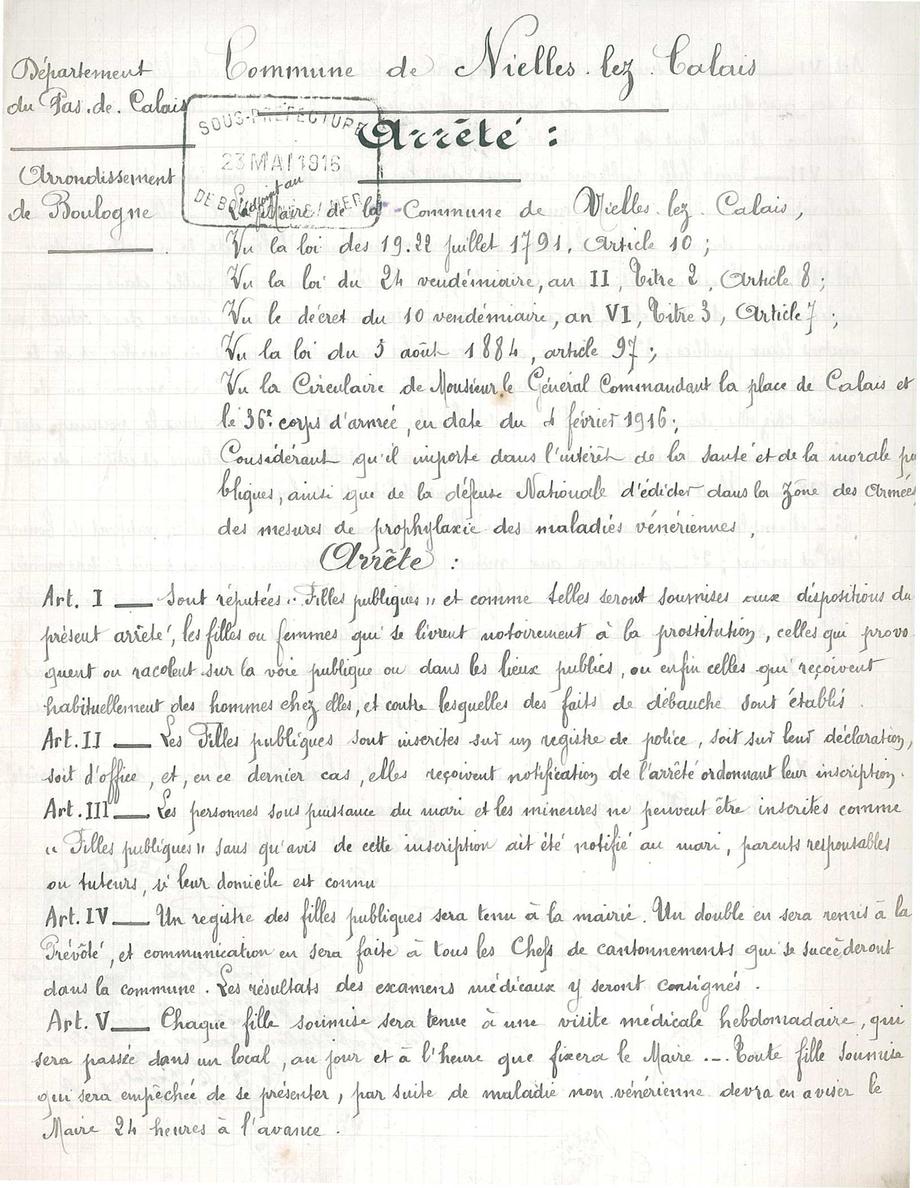 Département
du Pas.de.Calais
Arrondissement
de Boulogne
Commune de Nielles.lez.Calais
SOUS-PRÉFECTURE
23 MAI 1916
DE BOULOGNE S/MER
Arrêté :
L'adjoint au
Maire de la Commune de Nielles.lez.Calais,
Vu la loi des 19.22 juillet 1791. Article 10 ;
Vu la loi du 24 vendémiaire, an II, Titre 2, Article 8 ;
Vu le décret du 10 vendémiaire, an VI, Titre 3, Article 7 ;
Vu la loi du 5 août 1884, article 97 ;
Vu la Circulaire de Monsieur le Général Commandant la place de Calais et
le 36e corps d'armée, en date du février 1916 ;
Considérant qu'il importe dans l'intérêt de la santé et de la morale pu
bliques, ainsi que de la défense Nationale d'édicter dans la Zone des Armées
des mesures de prophylaxie des maladies vénériennes,
Arrête :
Art. I — Sont réputées "Filles publiques" et comme telles seront soumises aux dispositions du
présent arrêté, les filles ou femmes qui se livrent notoirement à la prostitution, celles qui provo
quent ou racolent sur la voie publique ou dans les lieux publics, ou enfin celles qui reçoivent
habituellement des hommes chez elles, et contre lesquelles des faits de débauche sont établis.
Art. II — Les Filles publiques sont inscrites sur un registre de police, soit sur leur déclaration,
soit d'office, et, en ce dernier cas, elles reçoivent notification de l'arrêté ordonnant leur inscription.
Art. III — Les personnes sous puissance du mari et les mineures ne peuvent être inscrites comme
"Filles publiques" sans qu'avis de cette inscription ait été notifié au mari, parents responsables
ou tuteurs, si leur domicile est connu
Art. IV — Un registre des filles publiques sera tenu à la mairie. Un double en sera remis à la
Prévôté, et communication en sera faite à tous les Chefs de cantonnements qui se succèderont
dans la commune. Les résultats des examens médicaux y seront consignés.
Art. V — Chaque fille soumise sera tenue à une visite médicale hebdomadaire, qui
sera passée dans un local, au jour et à l'heure que fixera le Maire .— Toute fille soumise
qui sera empêchée de se présenter, par suite de maladie non vénérienne devra en aviser le
Maire 24 heures à l'avance.